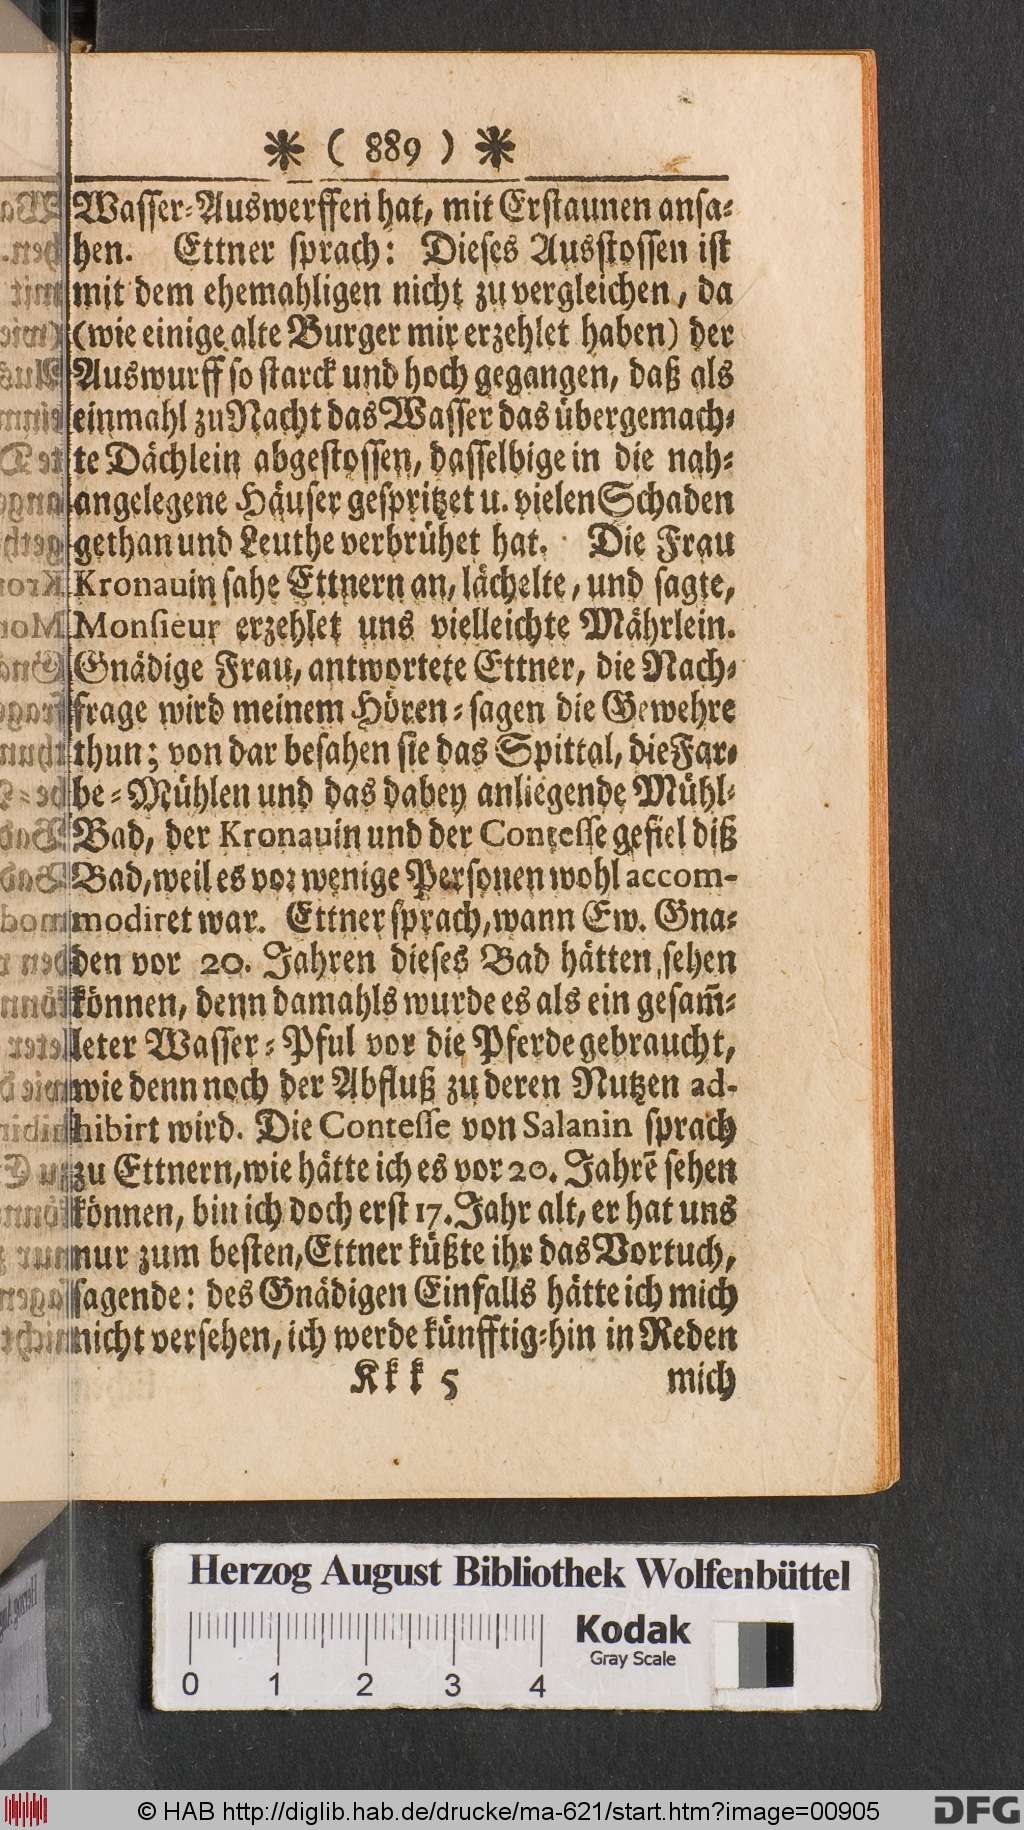 * ( 889 ) *
Wasser-Auswerffen hat, mit Erstaunen ansa-
hen. Ettner sprach: Dieses Ausstossen ist
mit dem ehemahligen nicht zu vergleichen, da
(wie einige alte Burger mir erzehlet haben) der
Auswurff so starck und hoch gegangen, daß als
einmahl zu Nacht das Wasser das übergemach-
te Dächlein abgestossen, dasselbige in die nah-
angelegene Häuser gespritzet u. vielen Schaden
gethan und Leuthe verbrühet hat. Die Frau
Kronauin sahe Ettnern an, lächelte, und sagte,
Monsieur erzehlet uns vielleichte Mährlein.
Gnädige Frau, antwortete Ettner, die Nach-
frage wird meinem Hören-sagen die Gewehre
thun; von dar besahen sie das Spittal, die Far-
be-Mühlen und das dabey anliegende Mühl-
Bad, der Kronauin und der Contesse gefiel diß
Bad, weil es vor wenige Personen wohl accom-
modiret war. Ettner sprach, wann Ew. Gna-
den vor 20. Jahren dieses Bad hätten sehen
können, denn damahls wurde es als ein gesam̃-
leter Wasser-Pful vor die Pferde gebraucht,
wie denn noch der Abfluß zu deren Nutzen ad-
hibirt wird. Die Contesse von Salanin sprach
zu Ettnern, wie hätte ich es vor 20. Jahrē sehen
können, bin ich doch erst 17. Jahr alt, er hat uns
nur zum besten, Ettner küßte ihr das Vortuch,
sagende: des Gnädigen Einfalls hätte ich mich
nicht versehen, ich werde künfftig-hin in Reden
Kkk 5 mich
Herzog August Bibliothek Wolfenbüttel
Kodak
Gray Scale
0 1 2 3 4
© HAB http://diglib.hab.de/drucke/ma-621/start.htm?image=00905
DFG